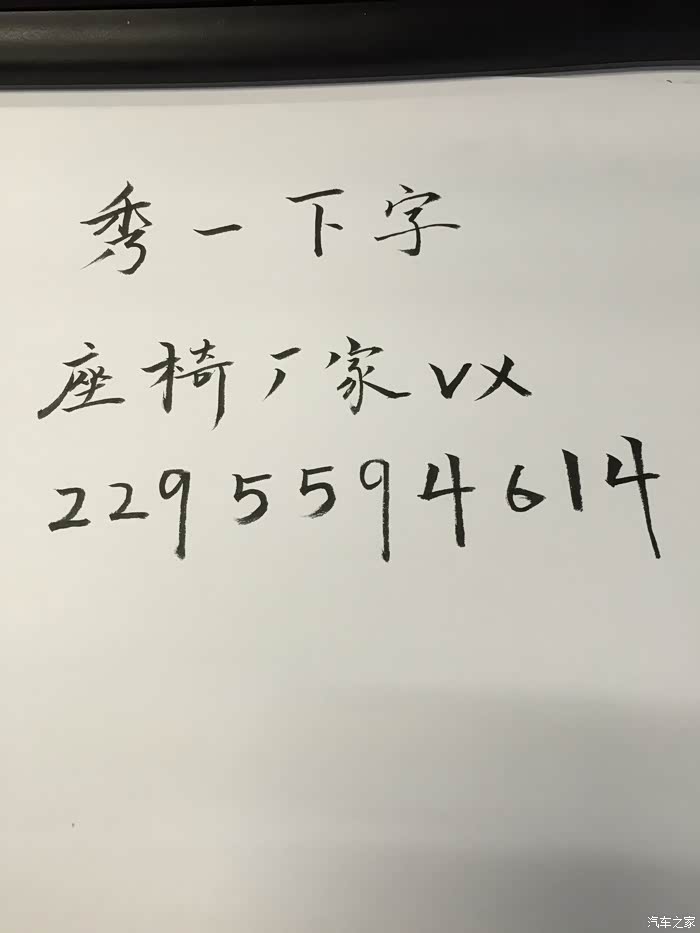 秀一下字
座椅厂家vx
2295594614
汽车之家